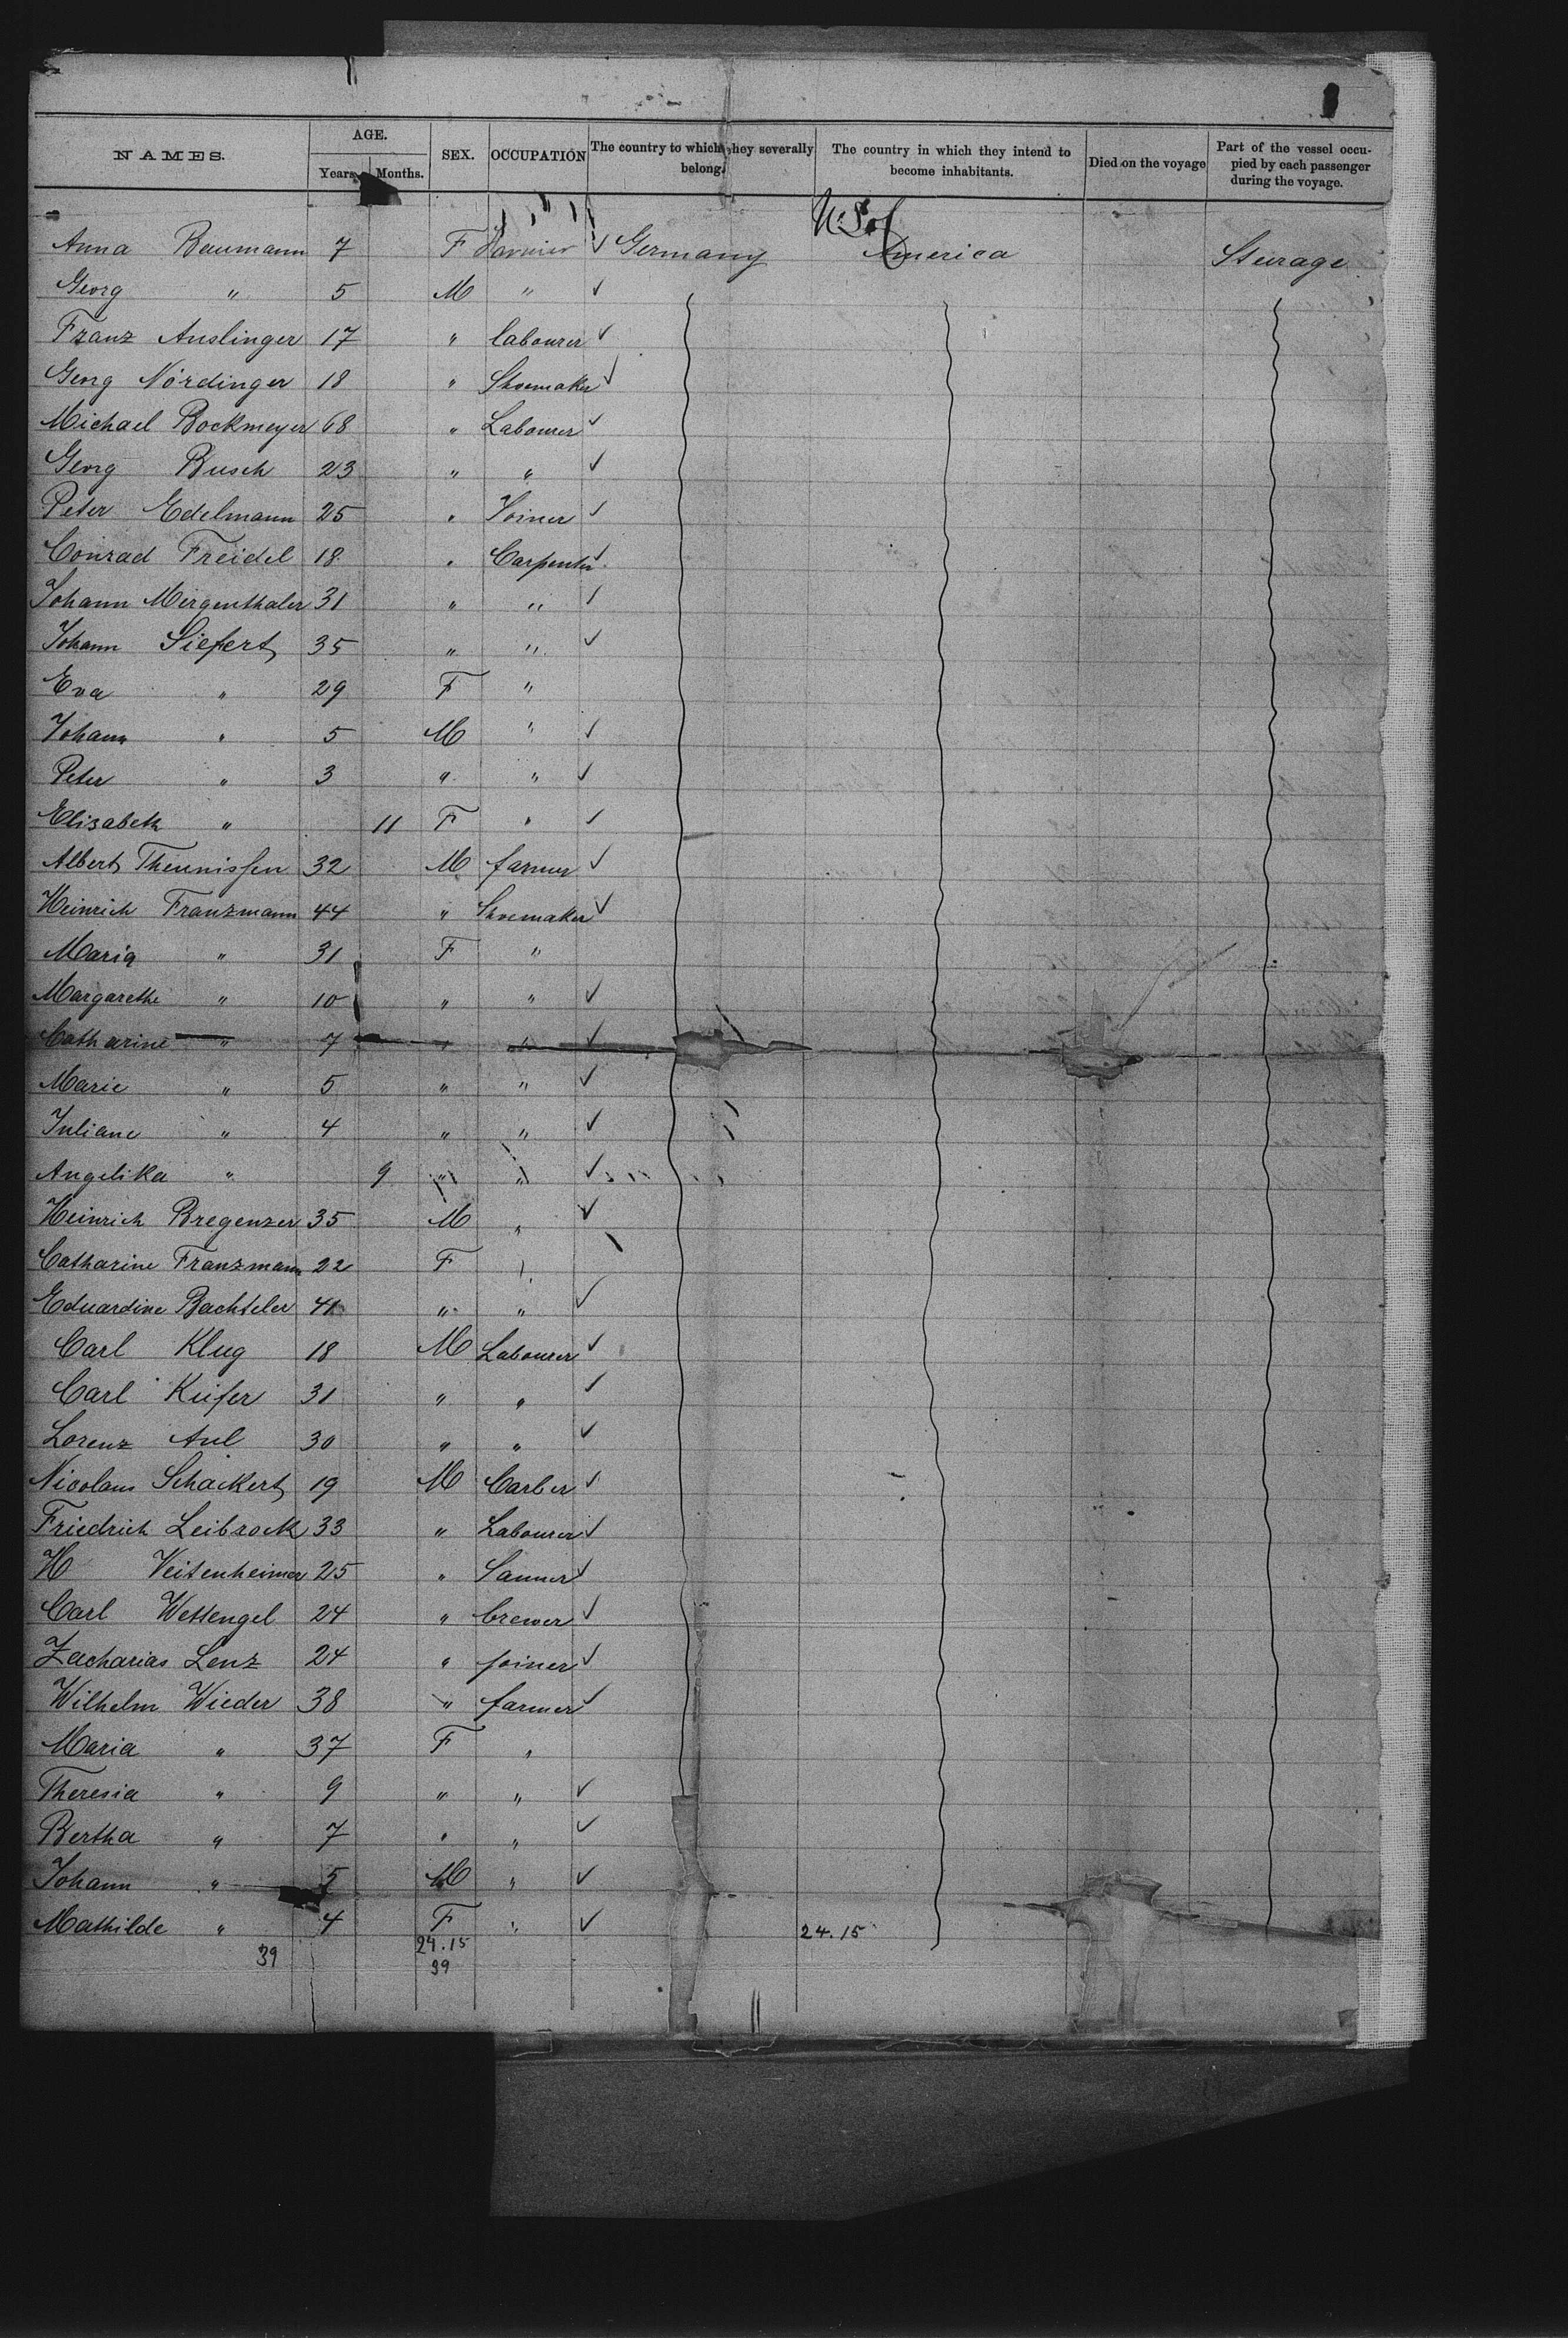 NAMES. AGE. SEX. OCCUPATION The country to which they severally belong. The country in which they intend to become inhabitants. Died on the voyage Part of the vessel occupied by each passenger during the voyage.
Years. Months.
U.S. of
Anna Baumann 7 F ✓ Germany America Steerage
Georg " 5 M " ✓
Franz Auslinger 17 " labourer ✓
Georg Nördinger 18 " Shoemaker ✓
Michael Bockmeyer 68 " Labourer ✓
Georg Busch 23 " " ✓
Peter Edelmann 25 " Joiner ✓
Conrad Freidel 18 " Carpenter ✓
Johann Mergenthaler 31 " " ✓
Johann Siefert 35 " " ✓
Eva " 29 F "
Johann " 5 M " ✓
Peter " 3 " " ✓
Elisabeth " 11 F " ✓
Albert Theunissen 32 M farmer ✓
Heinrich Franzmann 44 " Shoemaker ✓
Maria " 31 F "
Margarethe " 10 " " ✓
Catharine " 7 " " ✓
Marie " 5 " " ✓
Juliane " 4 " " ✓
Angelika " 9 " " ✓
Heinrich Bregenzer 35 M " ✓
Catharine Franzmann 22 F "
Eduardine Bachteler 41 " " ✓
Carl Klug 18 M Labourer ✓
Carl Kiefer 31 " " ✓
Lorenz Aul 30 " " ✓
Nicolaus Schackert 19 M Carber ✓
Friedrich Leibrock 33 " Labourer ✓
H Veitenheimer 25 " ✓
Carl Wettengel 24 " brewer ✓
Zacharias Lenz 24 " joiner ✓
Wilhelm Wieder 38 " farmer ✓
Maria " 37 F "
Theresia " 9 " " ✓
Bertha " 7 " " ✓
Johann " 5 M " ✓
Mathilde " 4 F " ✓
39 24.15 24.15
39